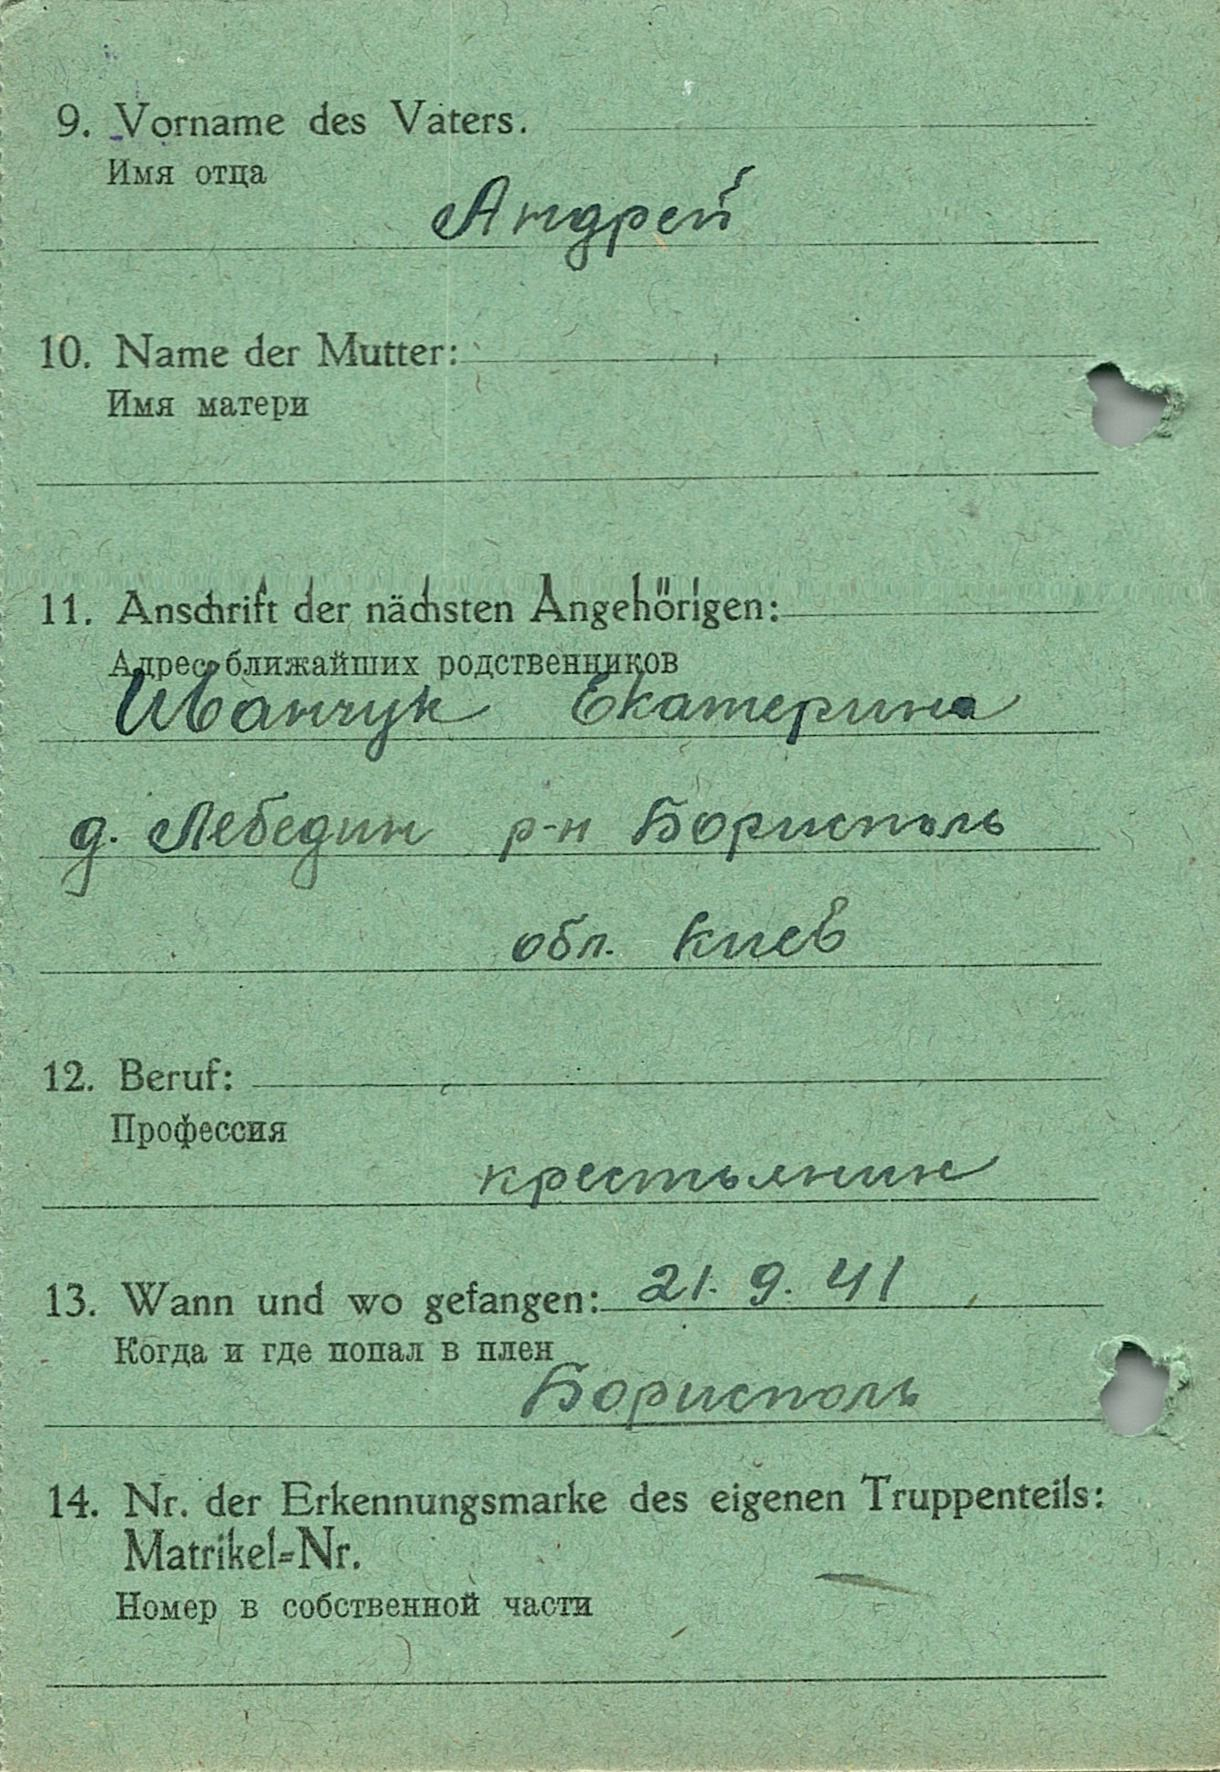 9. Vorname des Vaters.
Имя отца
Андрей
10. Name der Mutter:
Имя матери
11. Anschrift der nächsten Angehörigen:
Адрес ближайших родственников
Иванчук Екатерина
д. Лебедин р-н Борисполь
обл. Киев
12. Beruf:
Профессия
крестьянин
13. Wann und wo gefangen: 21. 9. 41
Когда и где попал в плен
Борисполь
14. Nr. der Erkennungsmarke des eigenen Truppenteils:
Matrikel=Nr.
Номер в собственной части